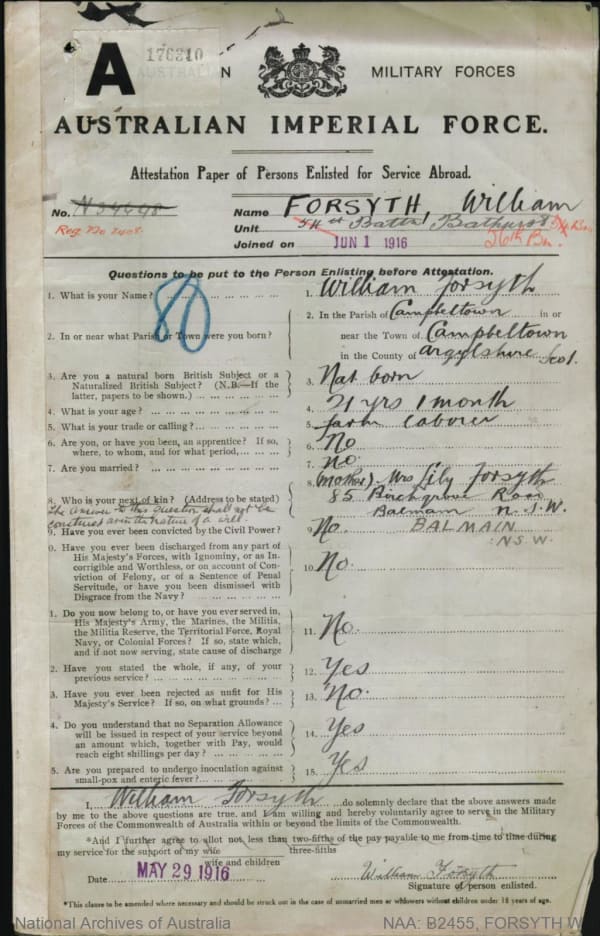 176310
A
AUSTRALIAN MILITARY FORCES
AUSTRALIAN IMPERIAL FORCE.
Attestation Paper of Persons Enlisted for Service Abroad.
No. N34698 Name FORSYTH, William
Reg. No 2408. Unit Battn Bathurst 56th Bn.
Joined on JUN 1 1916
Questions to be put to the Person Enlisting before Attestation.
80
1. What is your Name? 1. William Forsyth
2. In or near what Parish or Town were you born? 2. In the Parish of Campbeltown in or
near the Town of Campbeltown
in the County of Argylshire Scot.
3. Are you a natural born British Subject or a
Naturalized British Subject? (N.B.—If the
latter, papers to be shown.) 3. Nat born
4. What is your age? 4. 21 yrs 1 month
5. What is your trade or calling? 5. farm laborer
6. Are you, or have you been, an apprentice? If so,
where, to whom, and for what period, 6. No
7. Are you married? 7. No.
8. Who is your next of kin? (Address to be stated) 8. (mother) Mrs Lily Forsyth
85 Birchgrove Road
Balmain N.S.W.
The answer to this question shall not be
construed as in the nature of a will.
BALMAIN
N.S.W.
9. Have you ever been convicted by the Civil Power? No.
0. Have you ever been discharged from any part of
His Majesty's Forces, with Ignominy, or as In-
corrigible and Worthless, or on account of Con-
viction of Felony, or of a Sentence of Penal
Servitude, or have you been dismissed with
Disgrace from the Navy? 10. No.
1. Do you now belong to, or have you ever served in,
His Majesty's Army, the Marines, the Militia,
the Militia Reserve, the Territorial Force, Royal
Navy, or Colonial Forces? If so, state which,
and if not now serving, state cause of discharge 11. No.
2. Have you stated the whole, if any, of your
previous service? 12. Yes
3. Have you ever been rejected as unfit for His
Majesty's Service? If so, on what grounds? 13. No.
4. Do you understand that no Separation Allowance
will be issued in respect of your service beyond
an amount which, together with Pay, would
reach eight shillings per day? 14. Yes
5. Are you prepared to undergo inoculation against
small-pox and enteric fever? 15. Yes
I, William Forsyth do solemnly declare that the above answers made
by me to the above questions are true, and I am willing and hereby voluntarily agree to serve in the Military
Forces of the Commonwealth of Australia within or beyond the limits of the Commonwealth.
*And I further agree to allot not less than two-fifths of the pay payable to me from time to time during
three-fifths
my service for the support of my wife
wife and children
Date MAY 29 1916 William Forsyth
Signature of person enlisted.
*This clause to be amended where necessary and should be struck out in case of unmarried men or widowers without children under 18 years of age.
National Archives of Australia NAA: B2455, FORSYTH W